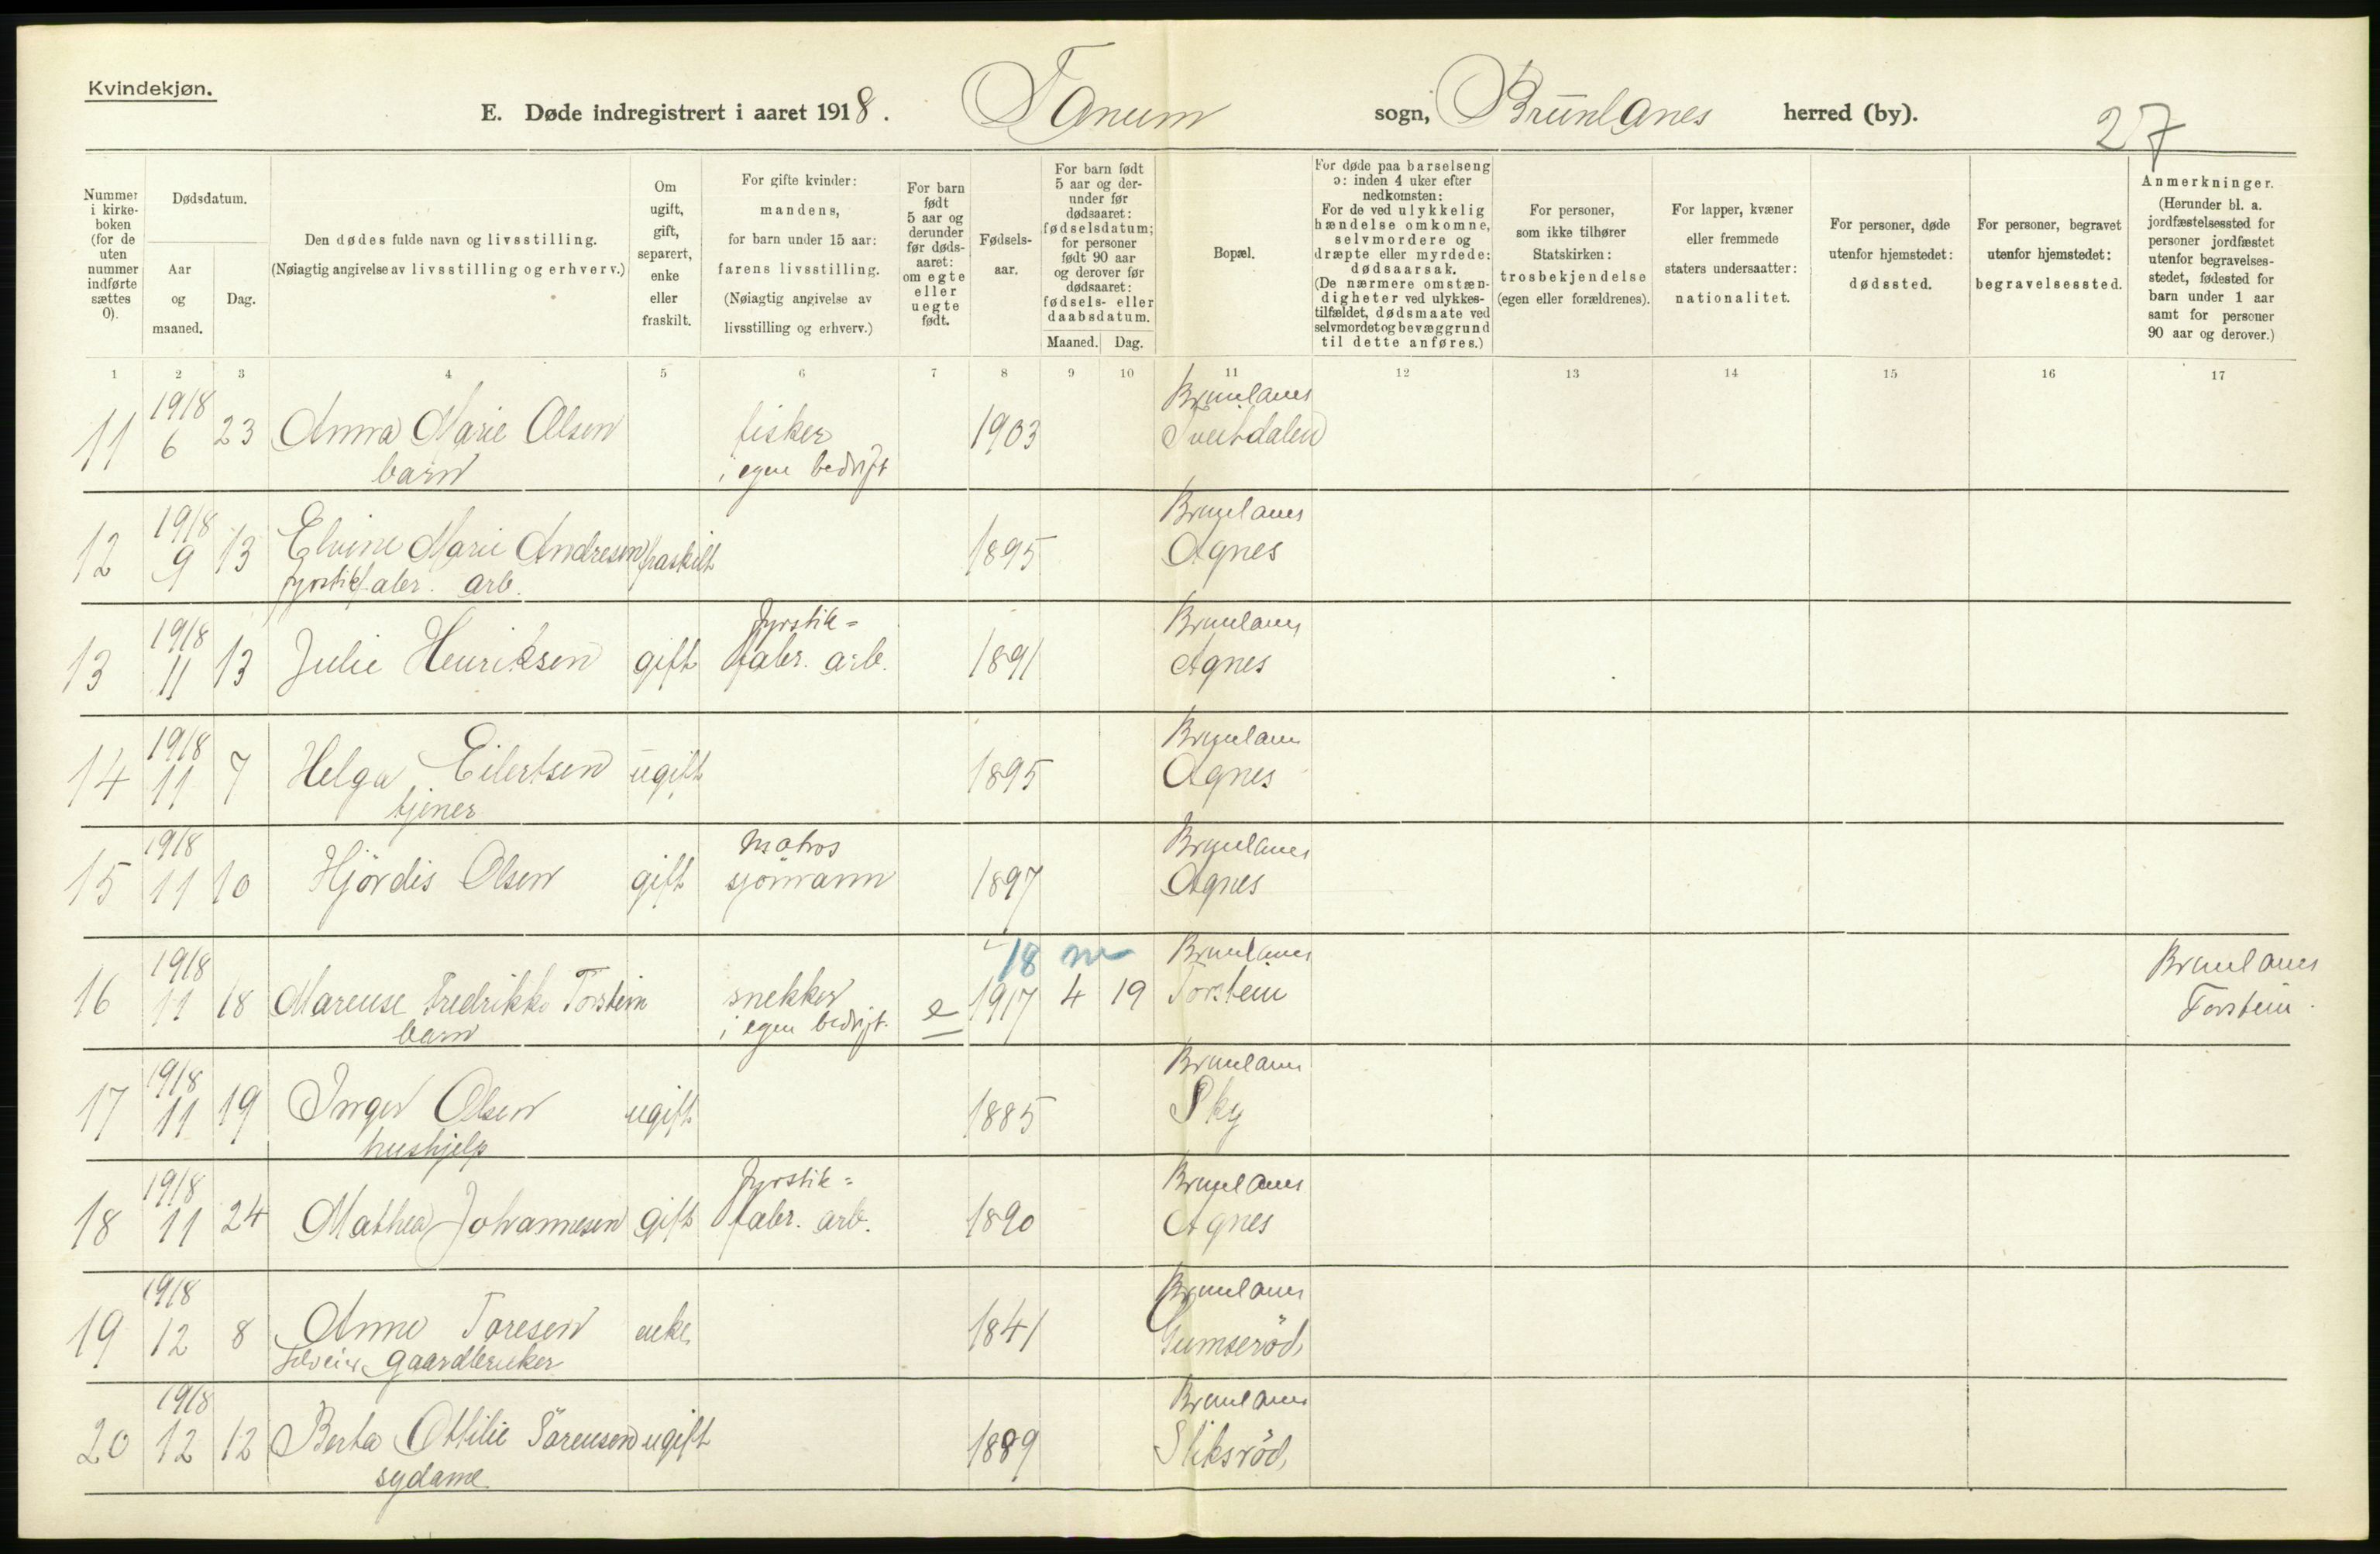 Kvindekjøn.
E. Døde indregistrert i aaret 1918. Tanum sogn, Brunlanes herred (by).
27
Nummer i kirke- boken (for de uten nummer indførte sættes 0).
Dødsdatum.
Aar og maaned.
Dag.
Den dødes fulde navn og livsstilling.
(Nøiagtig angivelse av livsstilling og erhverv.)
Om ugift, gift, separert, enke eller fraskilt.
For gifte kvinder: mandens,
for barn under 15 aar: farens livsstilling.
(Nøiagtig angivelse av livsstilling og erhverv.)
For barn født 5 aar og derunder før døds- aaret: om egte eller uegte født.
Fødsels- aar.
For barn født 5 aar og der- under før dødsaaret: fødselsdatum; for personer født 90 aar og derover før dødsaaret: fødsels- eller daabsdatum.
Maaned. Dag.
Bopæl.
For døde paa barselseng ɔ: inden 4 uker efter nedkomsten:
For de ved ulykkelig hændelse omkomne, selvmordere og dræpte eller myrdede: dødsaarsak.
(De nærmere omstæn- digheter ved ulykkes- tilfældet, dødsmaate ved selvmordet og bevæggrund til dette anføres.)
For personer, som ikke tilhører Statskirken: trosbekjendelse (egen eller forældrenes).
For lapper, kvæner eller fremmede staters undersaatter: nationalitet.
For personer, døde utenfor hjemstedet: dødssted.
For personer, begravet utenfor hjemstedet: begravelsessted.
Anmerkninger.
(Herunder bl. a. jordfæstelsessted for personer jordfæstet utenfor begravelses- stedet, fødested for barn under 1 aar samt for personer 90 aar og derover.)
1 2 3 4 5 6 7 8 9 10 11 12 13 14 15 16 17
1918 Brunlanes
11 6 23 Anna Marie Olsen fisker 1903 Tveitdalen
barn i egen bedrift
1918 Brunlanes
12 9 13 Elvine Marie Andresen fraskilt 1895 Agnes
fyrstikfabr. arb.
1918 fyrstik= Brunlanes
13 11 13 Julie Henriksen gift fabr. arb. 1891 Agnes
1918 Brunlanes
14 11 7 Helga Eilertsen ugift 1895 Agnes
tjener
1918 matros Brunlanes
15 11 10 Hjördis Olsen gift sjömann 1897 Agnes
1918 18 m Brunlanes Brunlanes
16 11 18 Marense Fredrikke Torstein snekker e 1917 4 19 Torstein Torstein.
barn i egen bedrift.
1918 Brunlanes
17 11 19 Inger Olsen ugift 1885 Sky
hushjelp
1918 fyrstik= Brunlanes
18 11 24 Mathea Johannesen gift fabr. arb. 1890 Agnes
1918 Brunlanes
19 12 8 Anne Toresen enke 1841 Gumseröd
selveier gaardbruker
1918 Brunlanes
20 12 12 Berta Ottilie Sörensen ugift 1889 Sliksröd
sydame